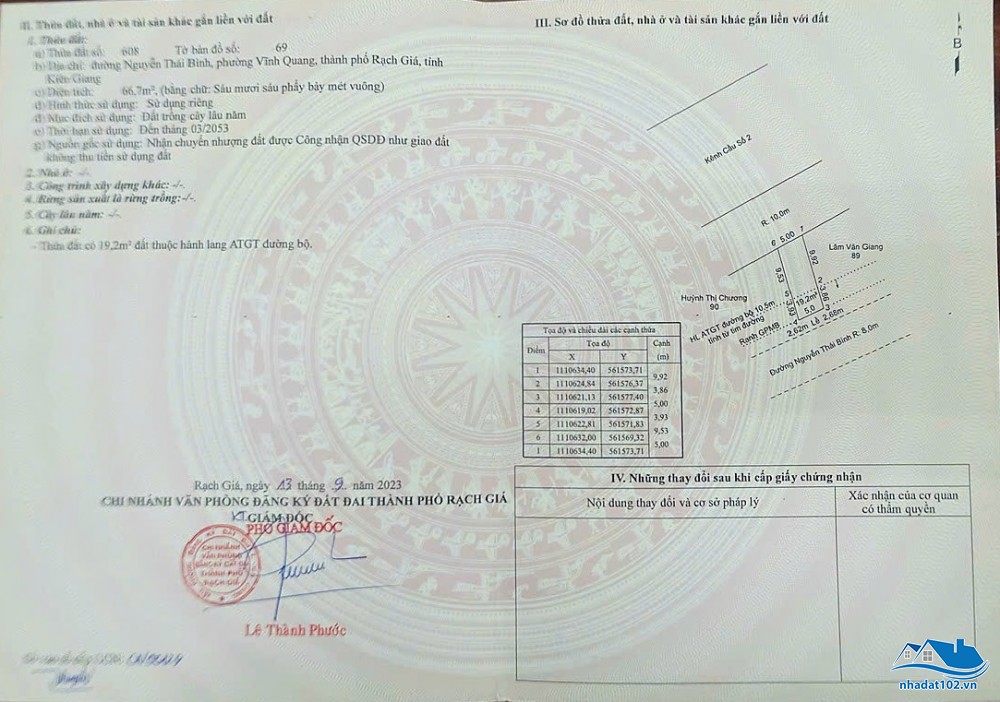 II. Thửa đất, nhà ở và tài sản khác gắn liền với đất
1. Thửa đất:
a) Thửa đất số: 608 Tờ bản đồ số: 69
b) Địa chỉ: đường Nguyễn Thái Bình, phường Vĩnh Quang, thành phố Rạch Giá, tỉnh
Kiên Giang
c) Diện tích: 66,7m², (bằng chữ: Sáu mươi sáu phẩy bảy mét vuông)
d) Hình thức sử dụng: Sử dụng riêng
đ) Mục đích sử dụng: Đất trồng cây lâu năm
e) Thời hạn sử dụng: Đến tháng 03/2053
g) Nguồn gốc sử dụng: Nhận chuyển nhượng đất được Công nhận QSDĐ như giao đất
không thu tiền sử dụng đất
2. Nhà ở: -/-.
3. Công trình xây dựng khác: -/-.
4. Rừng sản xuất là rừng trồng: -/-.
5. Cây lâu năm: -/-.
6. Ghi chú:
- Thửa đất có 19,2m² đất thuộc hành lang ATGT đường bộ.
Rạch Giá, ngày 13 tháng 9 năm 2023
CHI NHÁNH VĂN PHÒNG ĐĂNG KÝ ĐẤT ĐAI THÀNH PHỐ RẠCH GIÁ
KT GIÁM ĐỐC
PHÓ GIÁM ĐỐC
CHI NHÁNH
VĂN PHÒNG
ĐĂNG KÝ ĐẤT ĐAI
THÀNH PHỐ
RẠCH GIÁ
Lê Thành Phước
III. Sơ đồ thửa đất, nhà ở và tài sản khác gắn liền với đất
B
Kênh Cầu Số 2
R: 10.0m
6 5,00 1
9,92
9,53
Lâm Văn Giang
89
Huỳnh Thị Chương
90
5
2
3,93
19,2m²
3,86
4
5,0
3
HL ATGT đường bộ 10.5m
tính từ tim đường
Ranh GPMB
2.62m Lề 2.68m
Đường Nguyễn Thái Bình R: 8.0m
Tọa độ và chiều dài các cạnh thửa
Điểm Tọa độ Cạnh
X Y (m)
1 1110634,40 561573,71
9,92
2 1110624,84 561576,37
3,86
3 1110621,13 561577,40
5,00
4 1110619,02 561572,87
3,93
5 1110622,81 561571,83
9,53
6 1110632,00 561569,32
5,00
1 1110634,40 561573,71
IV. Những thay đổi sau khi cấp giấy chứng nhận
Nội dung thay đổi và cơ sở pháp lý
Xác nhận của cơ quan
có thẩm quyền
nhadat102.vn